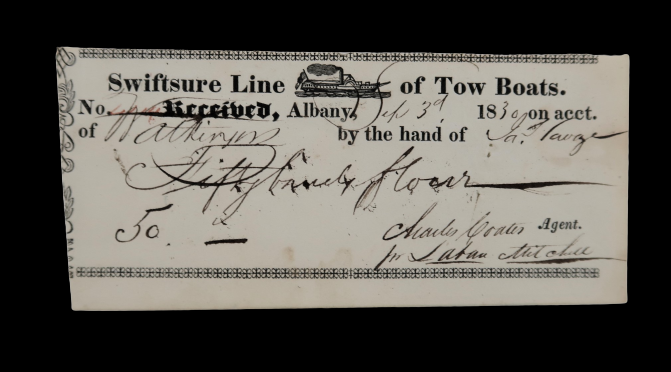 Swiftsure Line of Tow Boats.
No. Received, Albany, Sep 3d 1830 on acct.
of Watkinson by the hand of Jas. Savage
Fifty barrels flour
50
Charles Coates Agent.
for Laban Mitchell